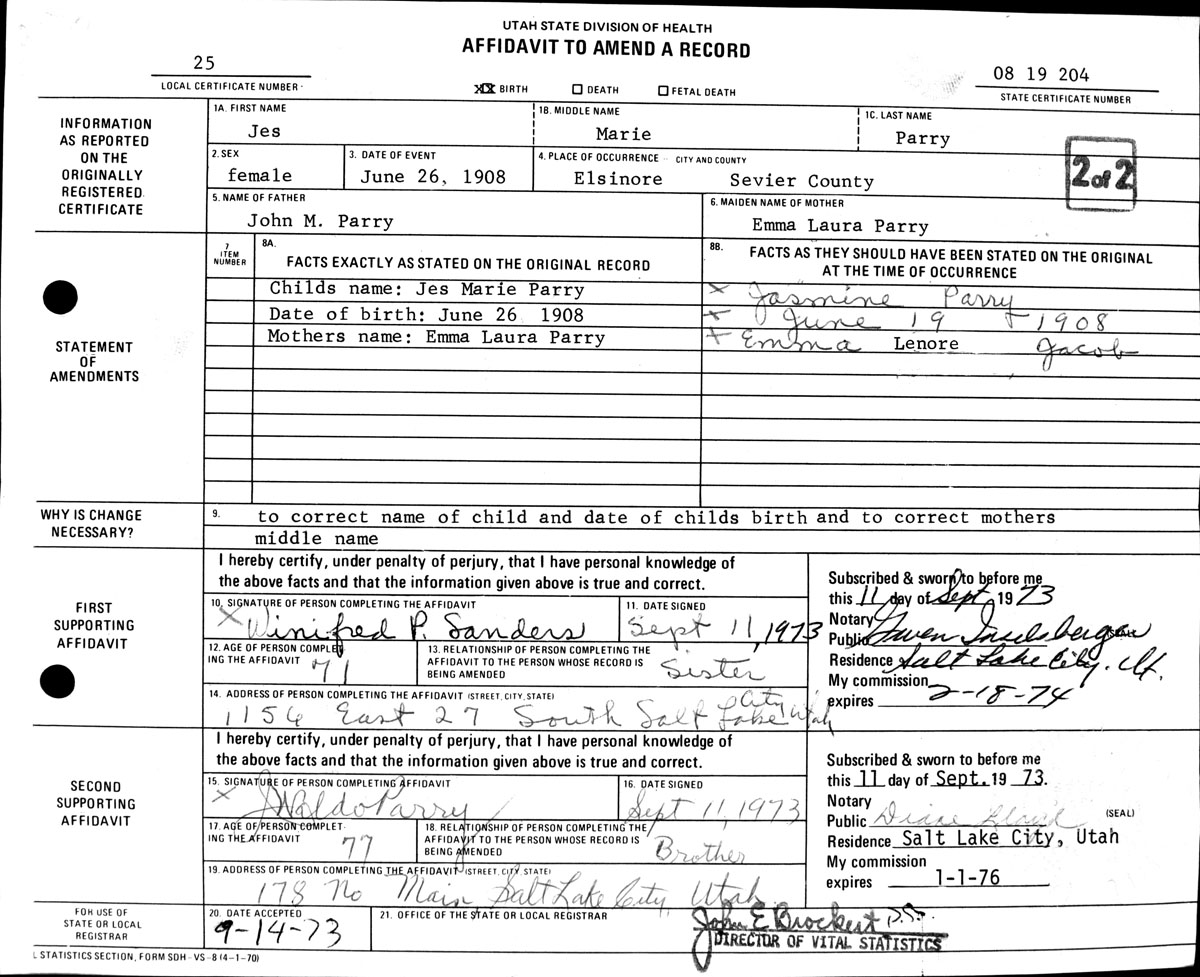 UTAH STATE DIVISION OF HEALTH
AFFIDAVIT TO AMEND A RECORD
25
LOCAL CERTIFICATE NUMBER
XX BIRTH ☐ DEATH ☐ FETAL DEATH
08 19 204
STATE CERTIFICATE NUMBER
INFORMATION
AS REPORTED
ON THE
ORIGINALLY
REGISTERED
CERTIFICATE
1A. FIRST NAME
Jes
1B. MIDDLE NAME
Marie
1C. LAST NAME
Parry
2. SEX
female
3. DATE OF EVENT
June 26, 1908
4. PLACE OF OCCURRENCE CITY AND COUNTY
Elsinore Sevier County
2 of 2
5. NAME OF FATHER
John M. Parry
6. MAIDEN NAME OF MOTHER
Emma Laura Parry
STATEMENT
OF
AMENDMENTS
7
ITEM
NUMBER
8A.
FACTS EXACTLY AS STATED ON THE ORIGINAL RECORD
8B. FACTS AS THEY SHOULD HAVE BEEN STATED ON THE ORIGINAL
AT THE TIME OF OCCURRENCE
Childs name: Jes Marie Parry
X Jasmine Parry
Date of birth: June 26 1908
X June 19 1908
Mothers name: Emma Laura Parry
X Emma Lenore Jacob
WHY IS CHANGE
NECESSARY?
9. to correct name of child and date of childs birth and to correct mothers
middle name
FIRST
SUPPORTING
AFFIDAVIT
I hereby certify, under penalty of perjury, that I have personal knowledge of
the above facts and that the information given above is true and correct.
10. SIGNATURE OF PERSON COMPLETING THE AFFIDAVIT
X Winifred P. Sanders
11. DATE SIGNED
Sept 11, 1973
12. AGE OF PERSON COMPLET
ING THE AFFIDAVIT 71
13. RELATIONSHIP OF PERSON COMPLETING THE
AFFIDAVIT TO THE PERSON WHOSE RECORD IS
BEING AMENDED
Sister
14. ADDRESS OF PERSON COMPLETING THE AFFIDAVIT (STREET, CITY, STATE)
1156 East 27 South Salt Lake City Utah
Subscribed & sworn to before me
this 11 day of Sept 1973
Notary
Public Gwen Inselsberger
Residence Salt Lake City, Ut.
My commission
expires 2-18-74
SECOND
SUPPORTING
AFFIDAVIT
I hereby certify, under penalty of perjury, that I have personal knowledge of
the above facts and that the information given above is true and correct.
15. SIGNATURE OF PERSON COMPLETING AFFIDAVIT
X J Waldo Parry
16. DATE SIGNED
Sept 11, 1973
17. AGE OF PERSON COMPLET
ING THE AFFIDAVIT 77
18. RELATIONSHIP OF PERSON COMPLETING THE
AFFIDAVIT TO THE PERSON WHOSE RECORD IS
BEING AMENDED
Brother
19. ADDRESS OF PERSON COMPLETING THE AFFIDAVIT (STREET, CITY, STATE)
178 No Main Salt Lake City, Utah
Subscribed and sworn to before me
this 11 day of Sept. 19 73.
Notary
Public Diane (SEAL)
Residence Salt Lake City, Utah
My commission
expires 1-1-76
FOR USE OF
STATE OR LOCAL
REGISTRAR
20. DATE ACCEPTED
9-14-73
21. OFFICE OF THE STATE OR LOCAL REGISTRAR
John E Brockert
DIRECTOR OF VITAL STATISTICS
L STATISTICS SECTION, FORM SDH-VS-8 (4-1-70)